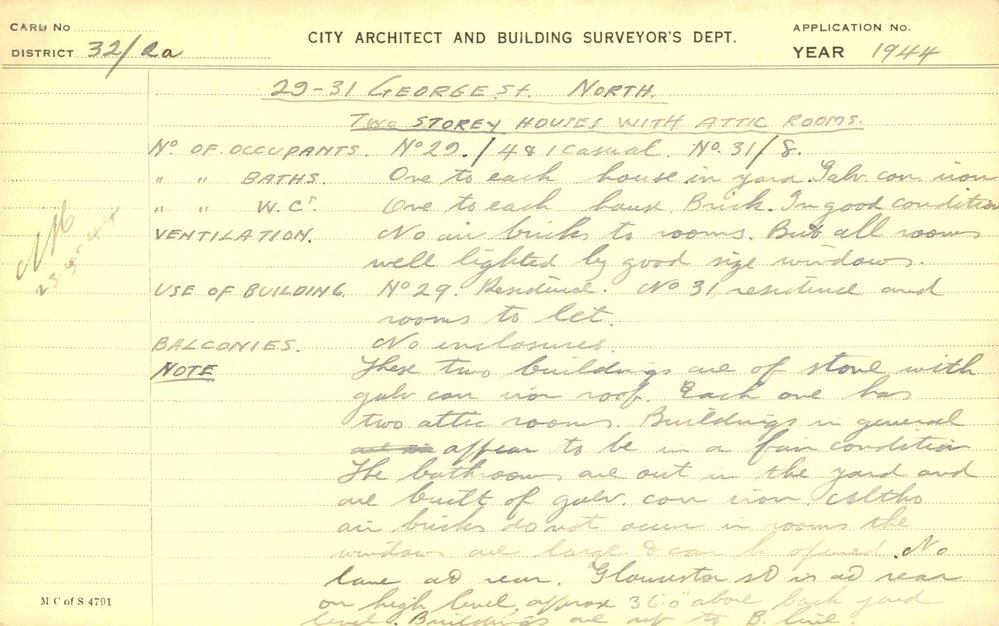 CARD No
DISTRICT 32/2a
CITY ARCHITECT AND BUILDING SURVEYOR'S DEPT.
APPLICATION No.
YEAR 1944
29-31 GEORGE St. NORTH.
TWO STOREY HOUSES WITH ATTIC ROOMS.
No OF OCCUPANTS. No 29. / 4 & 1 casual. No. 31 / 8.
" " BATHS. One to each house in yard. Galv. corr iron
" " W.Cs. One to each house. Brick. In good condition
VENTILATION. No air bricks to rooms. But all rooms
well lighted by good size windows.
USE OF BUILDING. No 29. Residence. No 31, residence and
rooms to let.
BALCONIES. No enclosures.
NOTE These two buildings are of stone with
galv corr iron roof. Each one has
two attic rooms. Buildings in general
appear to be in a fair condition
The bathrooms are out in the yard and
are built of galv. corr iron. Altho
air bricks do not occur in rooms the
windows are large & can be opened. No
lane at rear. Gloucester st is at rear
on high level, approx 36'.0" above back yard
level. Buildings are up to B. line.
23.5.44
M C of S 4791